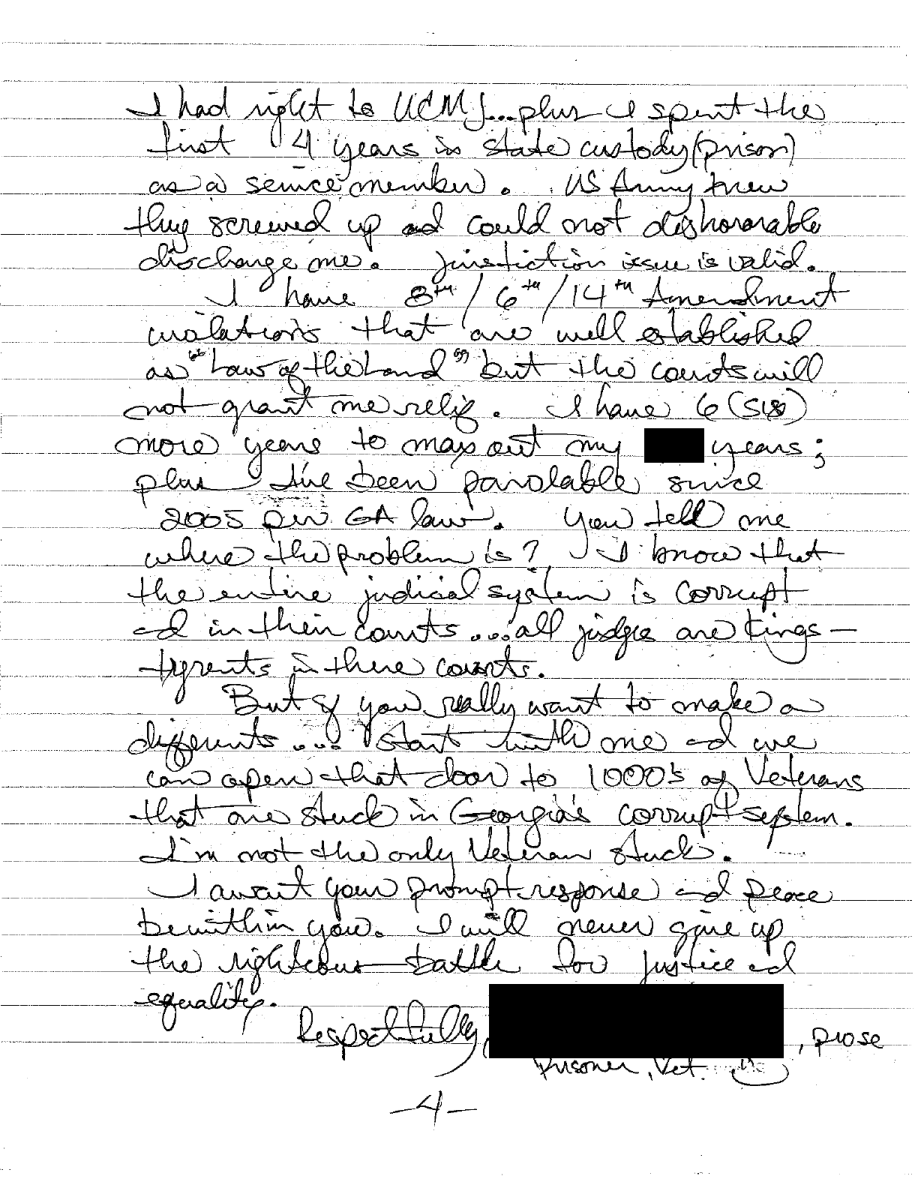 I had right to UCMJ...plus I spent the
first 4 years in state custody (prison)
as a service member. US Army knew
they screwed up ad could not dishonorable
discharge me. Jurisdiction issue is valid.
I have 8th / 6th / 14th Amendment
violations that are well established
as "Law of the Land" but the courts will
not grant me relif. I have 6 (six)
more years to max out my years;
plus I've been parolable since
2005 per GA law. You tell me
where the problem is? I know that
the entire judicial system is corrupt
ad in their courts...all judges are kings -
tyrents in there courts.
But if you really want to make a
differents... start with me ad we
can open that door to 1000's of Veterans
that are stuck in Georgia's corrupt system.
I'm not the only Veteran stuck.
I await your prompt response ad peace
be within you. I will never give up
the righteous battle for justice ad
equality.
Respectfully, , prose
Prisoner, Vet.
-4-